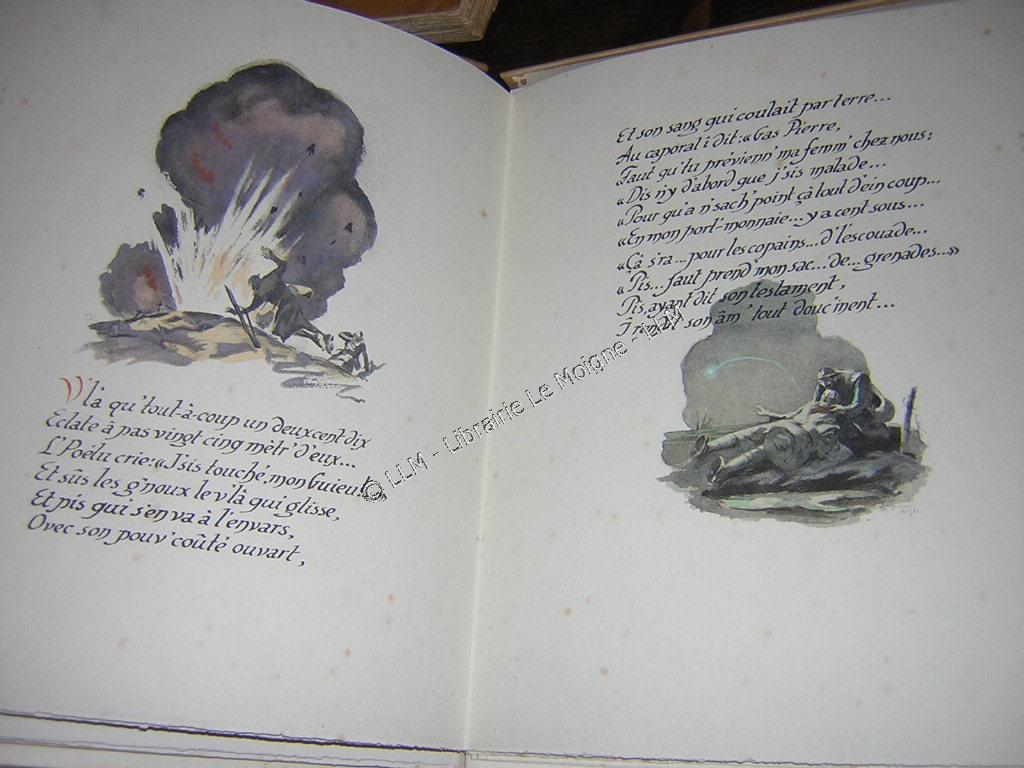 V'là qu'tout-à-coup un deux cent dix
Eclate à pas vingt cinq mètr' d'eux...
L'Poélu crie: «J'sis touché, mon Guieu!»
Et sûs les g'noux le v'là qui glisse,
Et pis qui s'en va à l'envars,
Ovec son pouv' coûté ouvart,
Et son sang qui coulait par terre...
Au caporal i dit: «Gas Pierre,
Faut qu'tu prévienn' ma femm' chez nous;
«Dis n'y d'abord que j'sis malade...
«Pour qu'a n'sach' point çà tout d'ein coup...
«En mon port'-monnaie... y a cent sous...
«Çà s'ra... pour les copains... d'l'escouade...
«Pis... faut prend' mon sac... de... grenades...»
Pis, ayant dit son testament,
I rendit son âm' tout douc'ment...
© LLM - Librairie Le Moigne - LLM